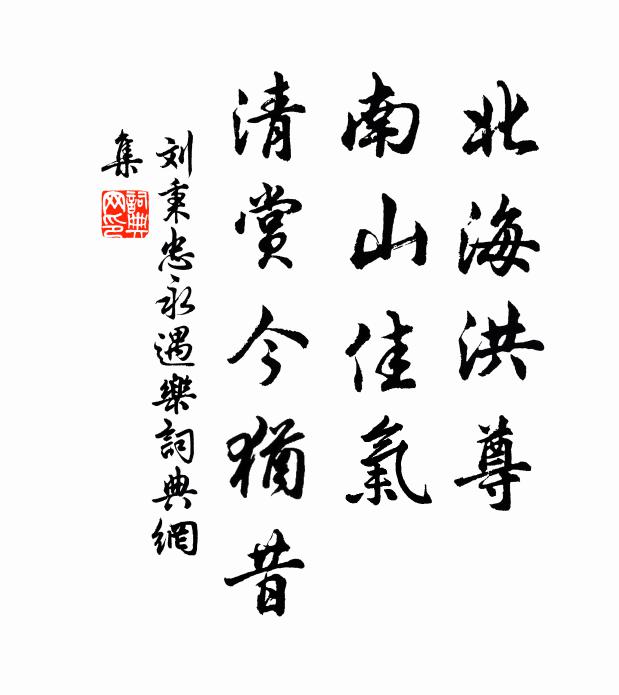 北海洪尊
南山佳氣
清賞今猶昔
刘秉忠永遇樂詞典網
集
詞典
网印